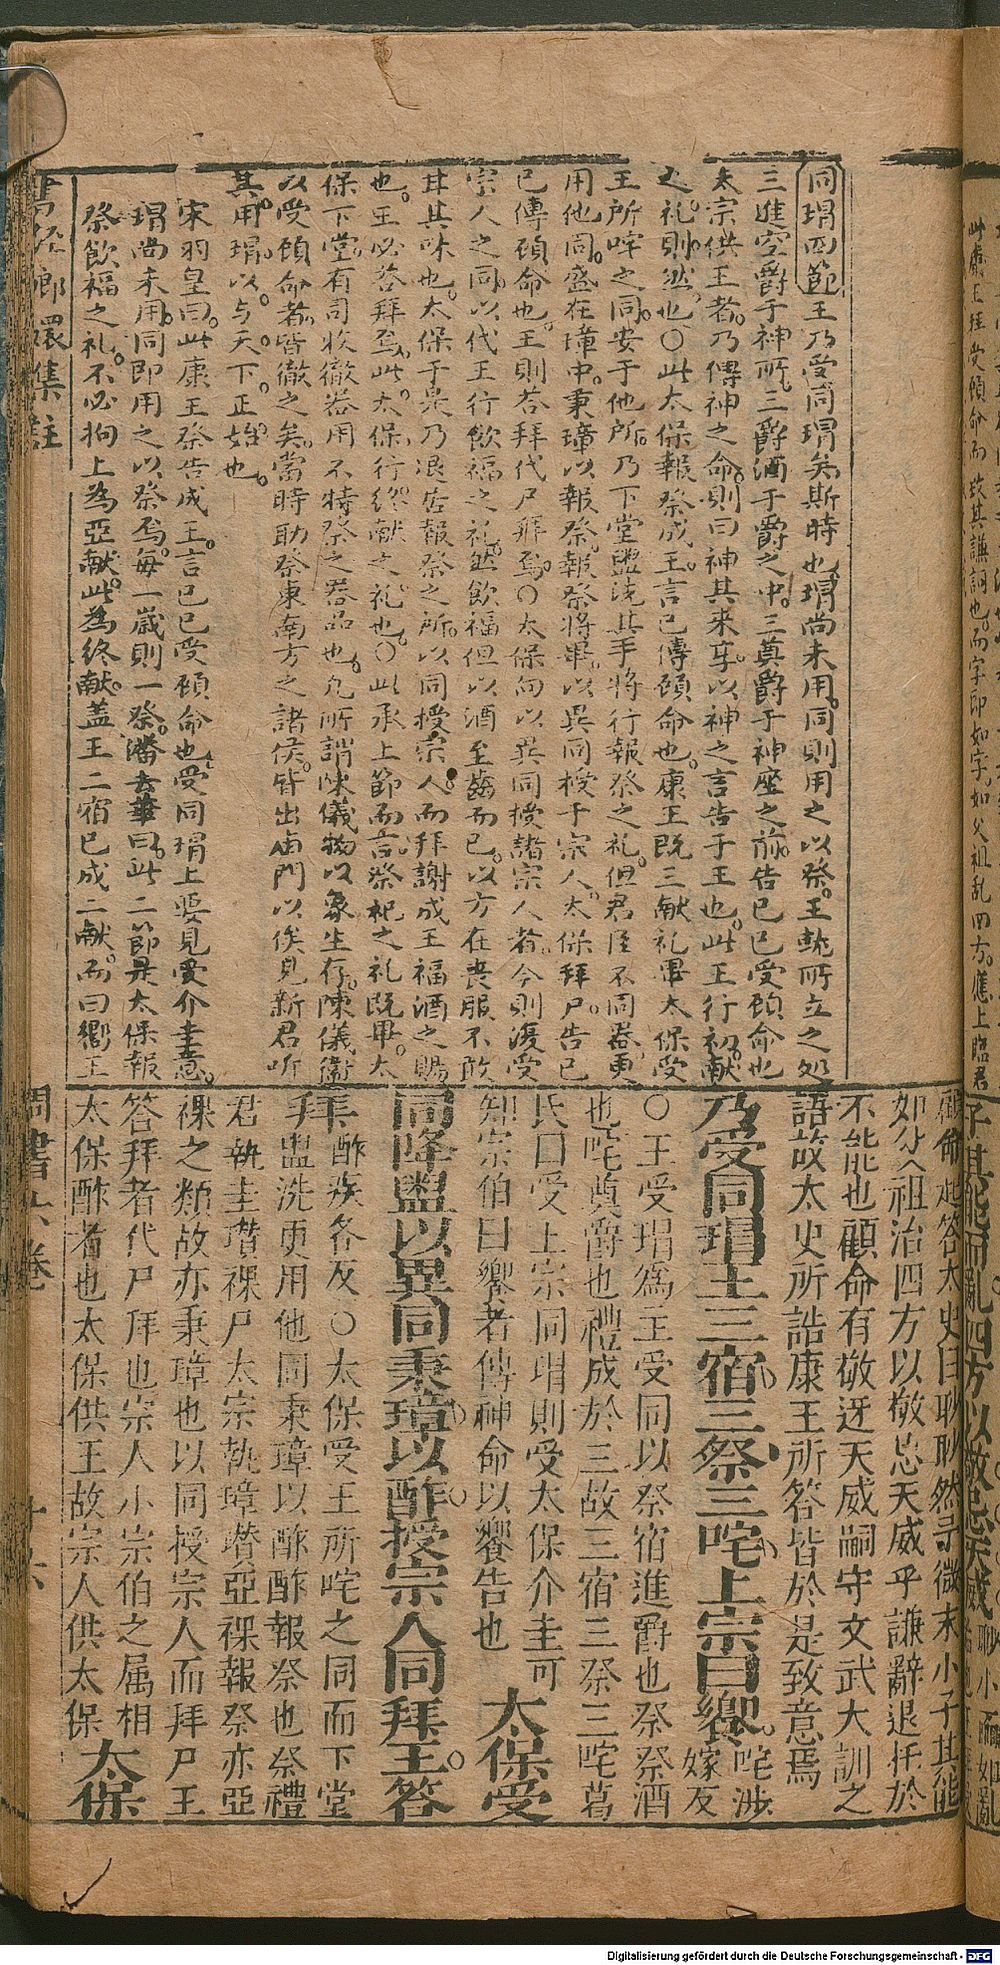 同瑁四節王乃受同瑁矣斯時也瑁尚未用同則用之以祭王執所立之処
三進空爵于神所三爵酒于爵之中三奠爵于神座之前告已已受顧命也
太宗供王者乃傳神之命則曰神其来享以神之言告于王也此王行初献
之礼則然也〇此太保報祭成王言已傳顧命也康王既三献礼畢太保受
王所咤之同安于他所乃下堂盥洗其手將行報祭之礼但君臣不同器更
用他同盛在璋中秉璋以報祭報祭將畢以異同授于宗人太保拜尸告已
已傳顧命也王則荅拜代尸拜焉〇太保向以異同授諸宗人者今則復受
宗人之同以代王行飲福之礼然飲福但以酒至齒而已以方在喪服不敢
甘其味也太保于是乃退居報祭之所以同授宗人而拜謝成王福酒之賜
也王必荅拜焉此太保行終献之礼也〇此承上節而言祭祀之礼既畢太
保下堂有司收徹器用不特祭之器品也凡所謂陳儀物以象生存陳儀衛
以受顧命者皆徹之矣當時助祭東南方之諸侯皆出庙門以俟見新君听
其用瑁以与天下正始也
宋羽皇曰此康王祭告成王言已已受顧命也受同瑁上要見受介圭意
瑁尚未用同即用之以祭焉毎一歳則一祭潘去華曰此二節是太保報
祭飲福之礼不必拘上為亞献此為终献盖王二宿已成二献而曰嚮王
書經嫏嬛集註
周書六卷
十六
顧命起答太史曰眇眇然予微末小子其能
如父祖治四方以敬忌天威乎謙辭退托於
不能也顧命有敬迓天威嗣守文武大訓之
語故太史所誥康王所答皆於是致意焉
乃受同瑁王三宿三祭三咤上宗曰饗咤涉嫁反
〇王受瑁爲主受同以祭宿進爵也祭祭酒
也咤奠爵也禮成於三故三宿三祭三咤葛
氏曰受上宗同瑁則受太保介圭可
知宗伯曰饗者傳神命以饗告也 太保受
同降盥以異同秉璋以酢授宗人同拜王答
拜酢疾各反〇太保受王所咤之同而下堂
盥洗更用他同秉璋以酢酢報祭也祭禮
君執圭瓚祼尸太宗執璋瓚亞祼報祭亦亞
祼之類故亦秉璋也以同授宗人而拜尸王
答拜者代尸拜也宗人小宗伯之属相
太保酢者也太保供王故宗人供太保 太保
Digitalisierung gefördert durch die Deutsche Forschungsgemeinschaft - DFG